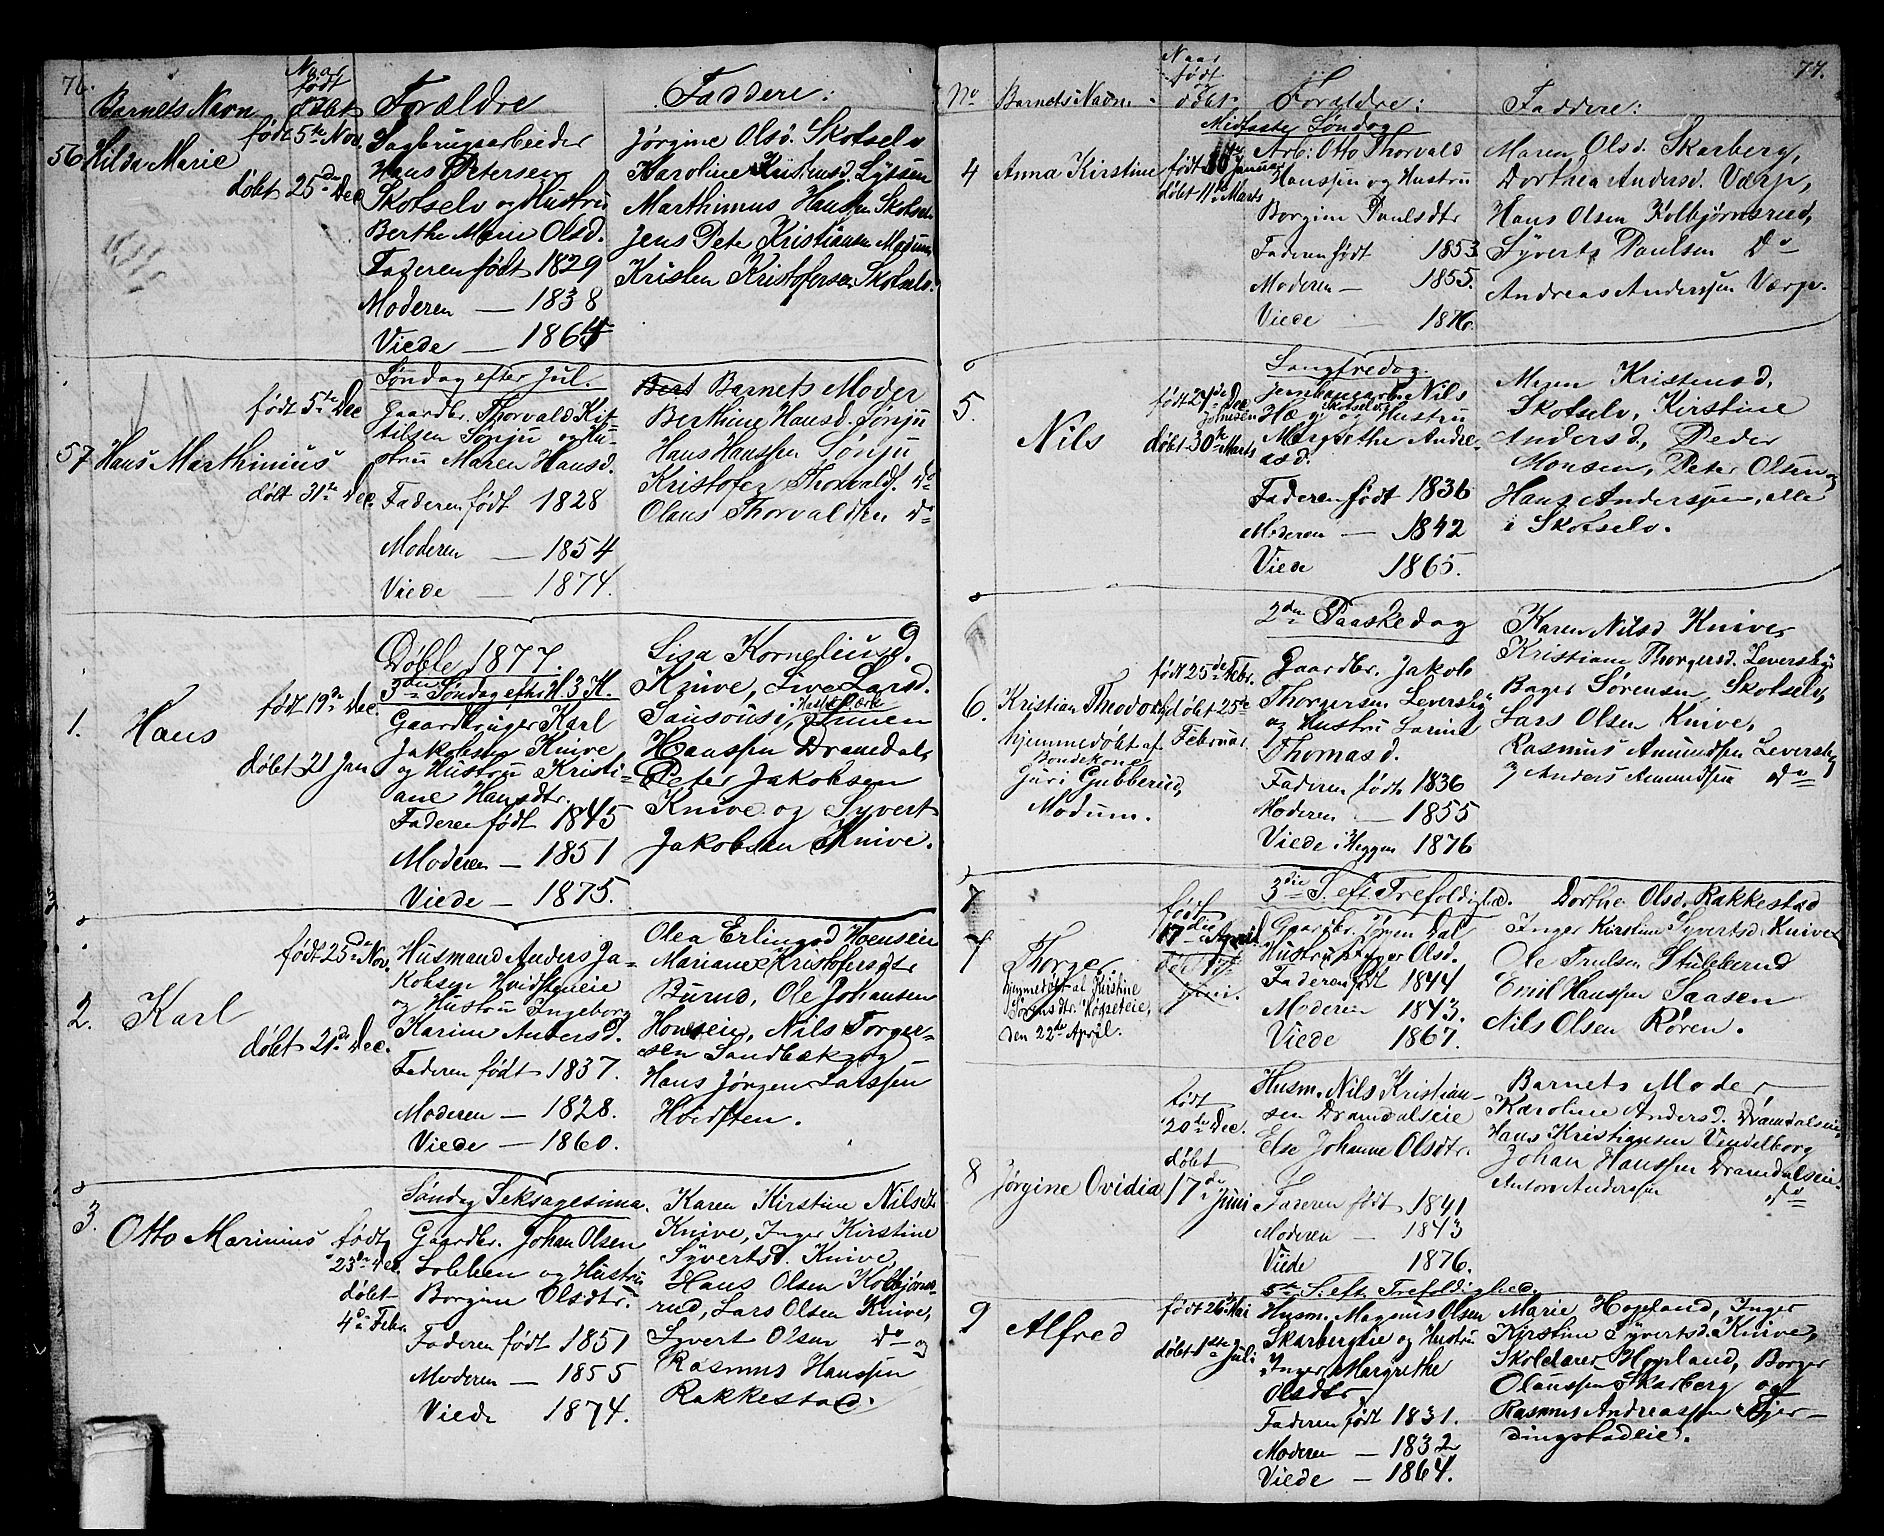 76.
Barnets Navn
Naar
født
døbt
Forældre
Faddere:
56 Hilda Marie
født 5te Nov.
døbt 25de Dec
Sagbrugsarbeider
Hans Petersen
Skotselv og Hustru
Berthe Marie Olsd.
Faderen født 1829
Moderen — 1838
Viede —
Jørgine Olsd. Skotselv
Karoline
Marthinius Hansen Skotselv
Jens Peter Kristiansen Modum
Kristen Kristofersen Skotselv.
57 Hans Marthinius
født 5te Dec
døbt 31te Dec.
Søndag efter Jul.
Gaardbr. Thorvald Kit-
tilsen Sønju og Hu-
stru Maren Hansd.
Faderen født 1828
Moderen — 1854
Viede — 1874.
Barnets Moder
Berthine Hansd. Sønju
Hans Hanssen Sønju
Kristofer Thorvalds. Do
Olaus Thorvaldsen Do
1. Hans
født 19de Dec.
døbt 21 Jan
Døbte 1877.
3die Søndag efter H. 3 K.
Gaardbruger Karl
Jakobsen Knive
og Hustru Kristi-
ane Hansdtr.
Faderen født 1845
Moderen — 1851
Viede — 1875.
Lisa Korneliusd.
Knive, Live Larsd.
Sansousi,
Hanssen Dramdal,
Peter Jakobsen
Knive og Syvert
Jakobsen Knive.
2. Karl
født 25de Nov.
døbt 21de Dec.
Husmand Anders Ja-
kobsen Hvidsteneie
og Hustru Ingeborg
Karine Andersd.
Faderen født 1837.
Moderen — 1828.
Viede — 1860.
Olea Erlingsd Hoenseie
Mariane Kristofersdtr
Burud, Ole Johansen
Honseie, Nils Torger-
sen Sandbæk og
Hans Jørgen Larssen
Hvidsten.
3. Otto Marinius
født
23de Dec.
døbt
4de Febr.
Søndag Seksagesima.
Gaardbr. Johan Olsen
Lobben og Hustru
Borgine Olsdtr.
Faderen født 1851
Moderen — 1855
Viede 1874.
Karen Kirstine Nilsdtr
Knive, Inger Kirstine
Syvertsd. Knive,
Hans Olsen Kolbjørns-
rud, Lars Olsen Knive,
Syvert Olsen Do og
Rasmus Hanssen
Rakkestad.
77.
No
Barnets Navn.
Naar
født
døbt.
Forældre:
Faddere:
4 Anna Kirstine
født Januar
døbt 11te Marts
Midfaste Søndag
Arb: Otto Thorvald
Hanssen og Hustru
Borgine Paulsdtr
Faderen født 1853
Moderen — 1855.
Viede — 1876.
Maren Olsd. Skarberg,
Dorthea Andersd. Værp,
Hans Olsen Kolbjørnsrud,
Syverts Paulsen Do
Andreas Anderssen Værp.
5. Nils
født 27de Dec
døbt 30te Marts
Langfredag.
Jernbanearb. Nils
Skotselv
Hustru
Margrethe Andre-
asd.
Faderen født 1836
Moderen — 1842
Viede 1865.
Maren Kristensd,
Skotselv, Kirstine
Andersd, Peder
Monsen, Peter Olsen og
Hans Anderssen, alle
i Skotselv.
6. Kristian Theodor
hjemmedøbt af
Bondekone
Guri Gubberud,
Modum.
født 25de Febr.
døbt 25de
Februar
2den Paaskedag
Gaardbr. Jakob
Thorgersen Leversby
og Hustru Larine
Thomasd.
Faderen født 1836
Moderen — 1855
Viede i Heggen 1876
Karen Nilsd Knive
Kristiane Thorgersd. Leversby
Bager Sørensen, Skotselv,
Lars Olsen Knive,
Rasmus Amundsen Leversby
Anders Amundssen Do
7
7 Thorger
hjemmedøbt af Kirstine
Sørensdtr. Høgseteie,
den 22de April.
født
17de April
Juni.
3die S. eft. Trefoldighed.
Gaardbr.
Hustru Inger Olsd.
Faderen født 1844
Moderen 1843.
Viede 1867.
Dorthe Olsd. Rakkestad
Inger Kirstine Syvertsd. Knive
Ole Trulsen Stubberud
Emil Hanssen Saasen
Nils Olsen Røren.
8 Jørgine Ovidia
født
20de Dec.
døbt
17de Juni
Husm. Nils Kristian-
sen Dramdalseie
Else Johanne Olsdtr.
Faderen født 1841
Moderen — 1843
Viede 1876.
Barnets Moder
Karoline Andersd. Dramdalseie
Hans Kristiansen Vendelborg
Johan Hanssen Dramdalseie
Anton Anderssen Do
9 Alfred
født 26 Mai
døbt 1ste Juli
5te S. eft. Trefoldighed.
Husm. Magnus Olsen
Skarbergeie og Hustru
Inger Margrethe
Olsdtr.
Faderen født 1831.
Moderen — 1832
Viede — 1864.
Marie Hopland, Inger
Kirstine Syvertsd. Knive,
Skolelærer Hopland, Borger
Olaussen Skarberg og
Rasmus Andreassen Fjer-
dingstadeie.